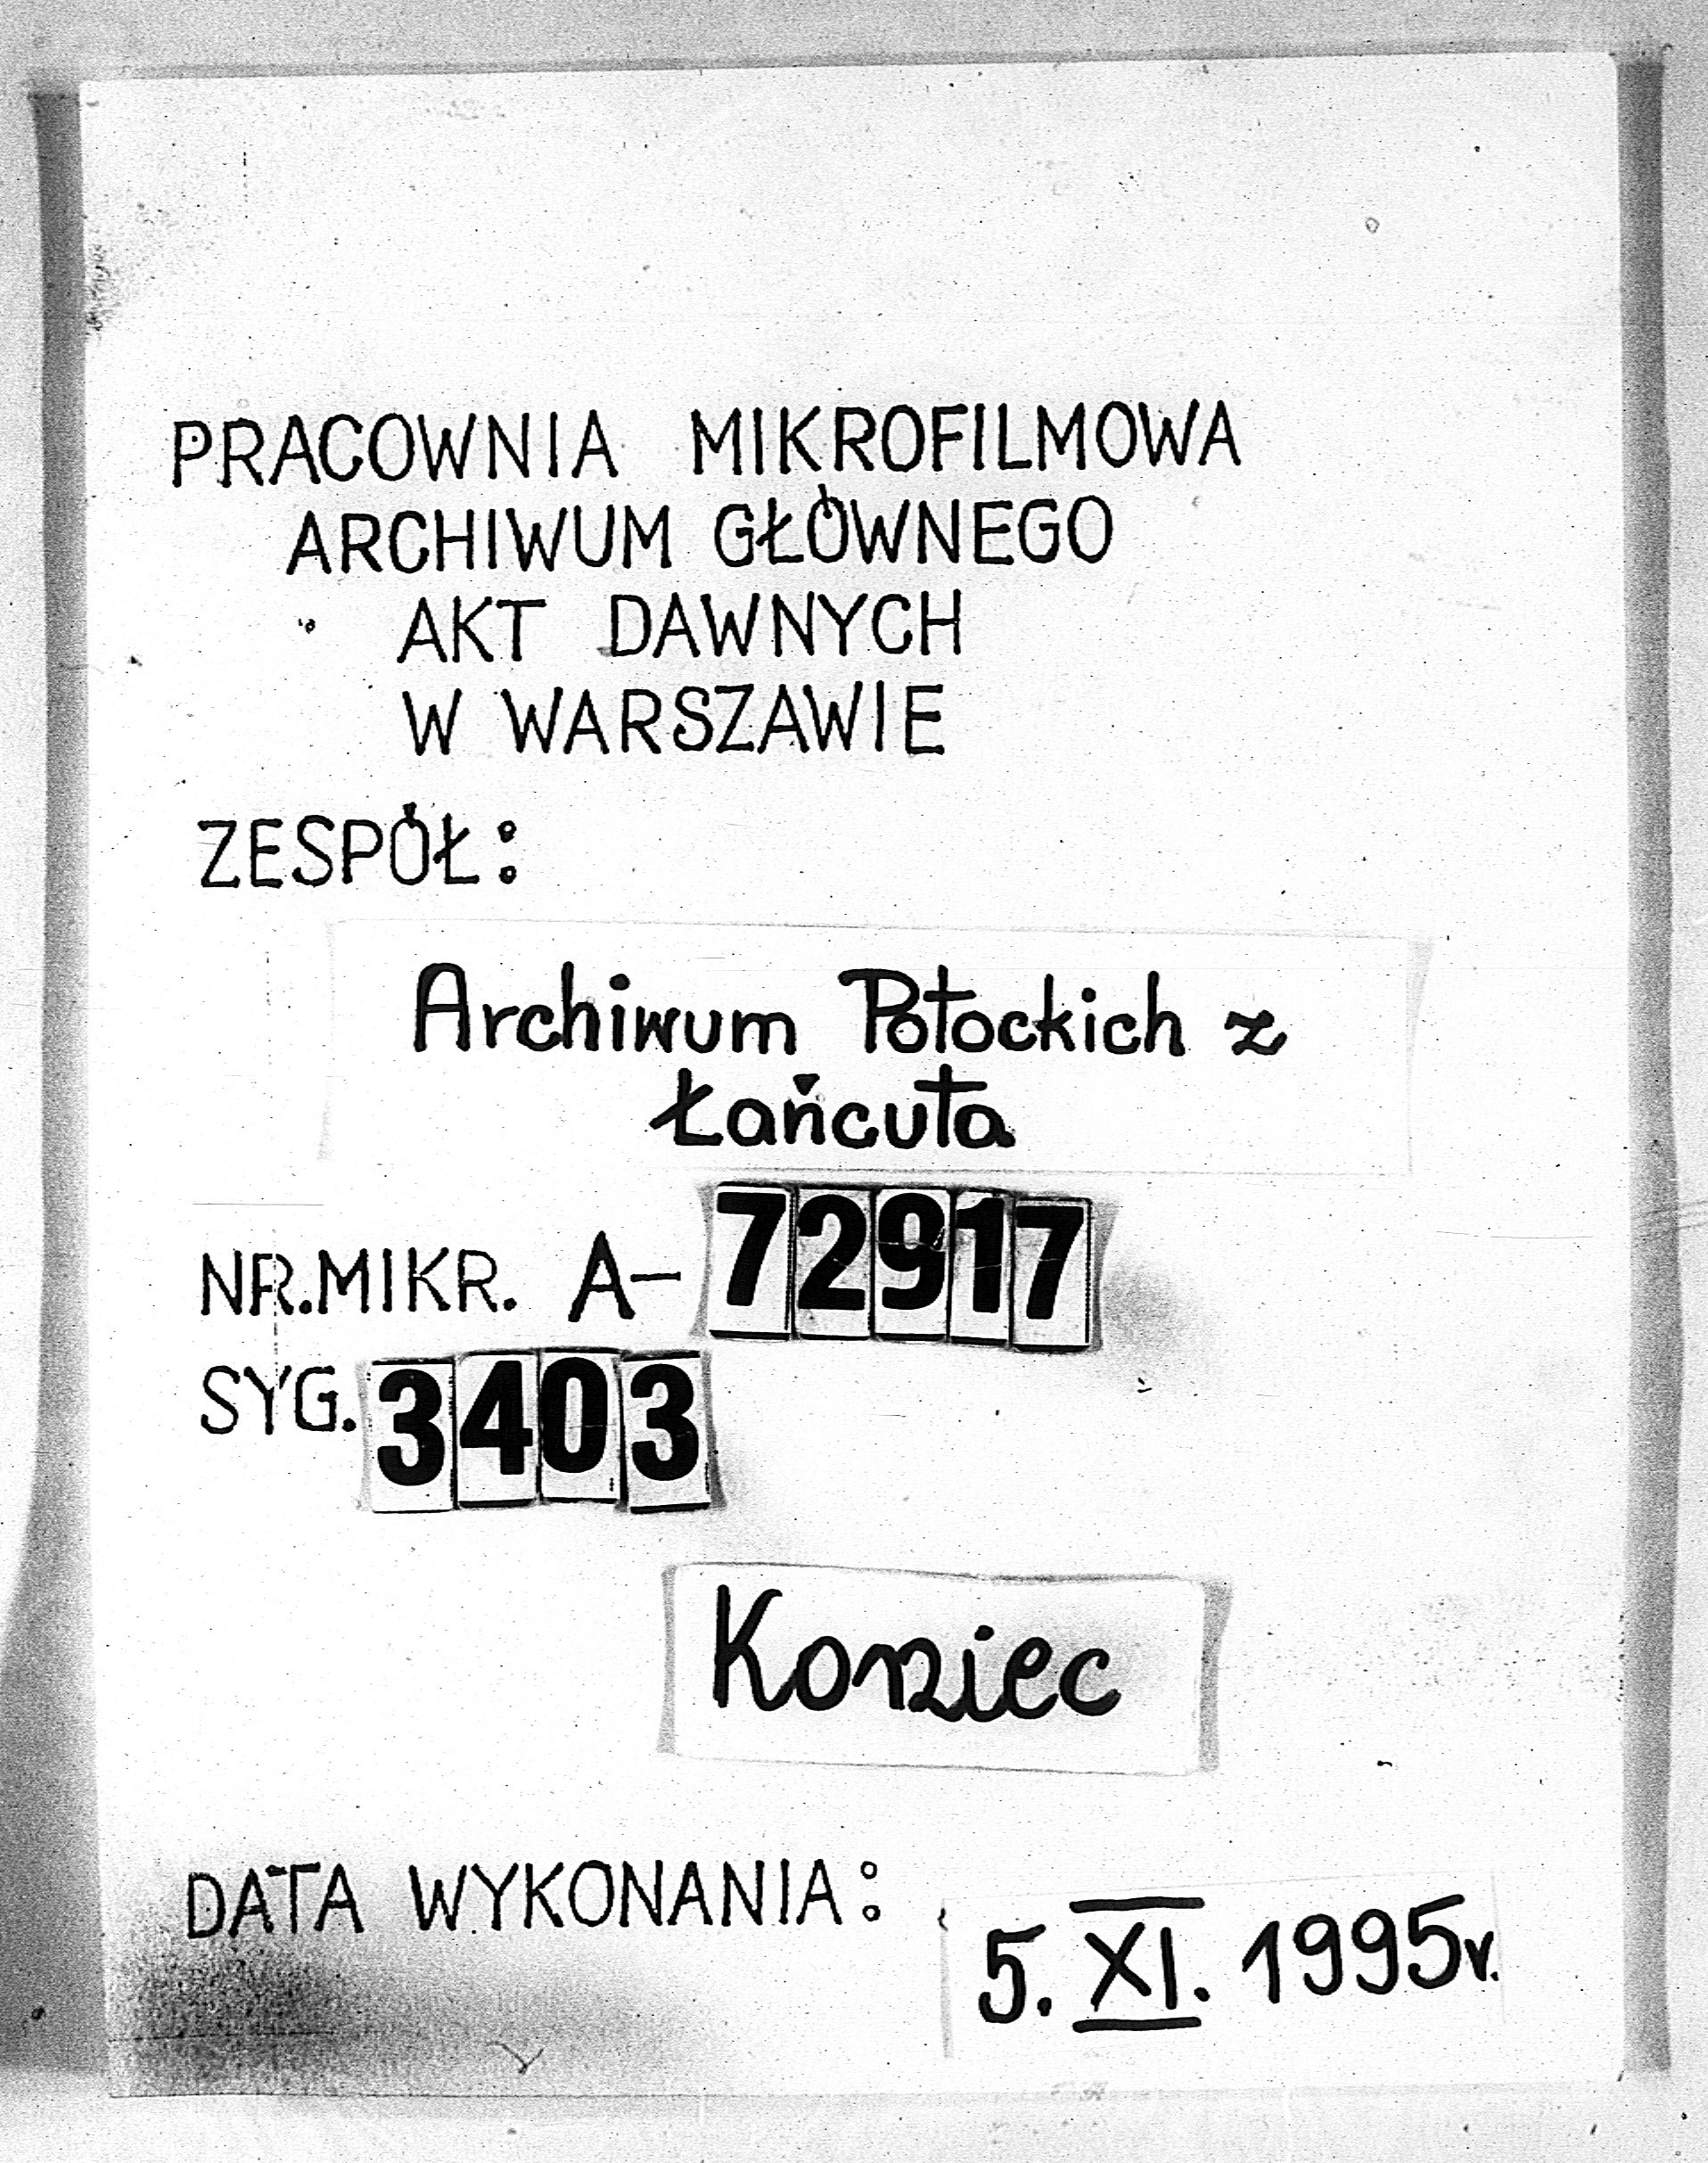 PRACOWNIA MIKROFILMOWA
ARCHIWUM GŁÓWNEGO
AKT DAWNYCH
W WARSZAWIE
ZESPÓŁ:
Archiwum Potockich z
Łańcuta
NR.MIKR. A-72917
SYG. 3403
Koniec
DATA WYKONANIA: 5. XI. 1995r.